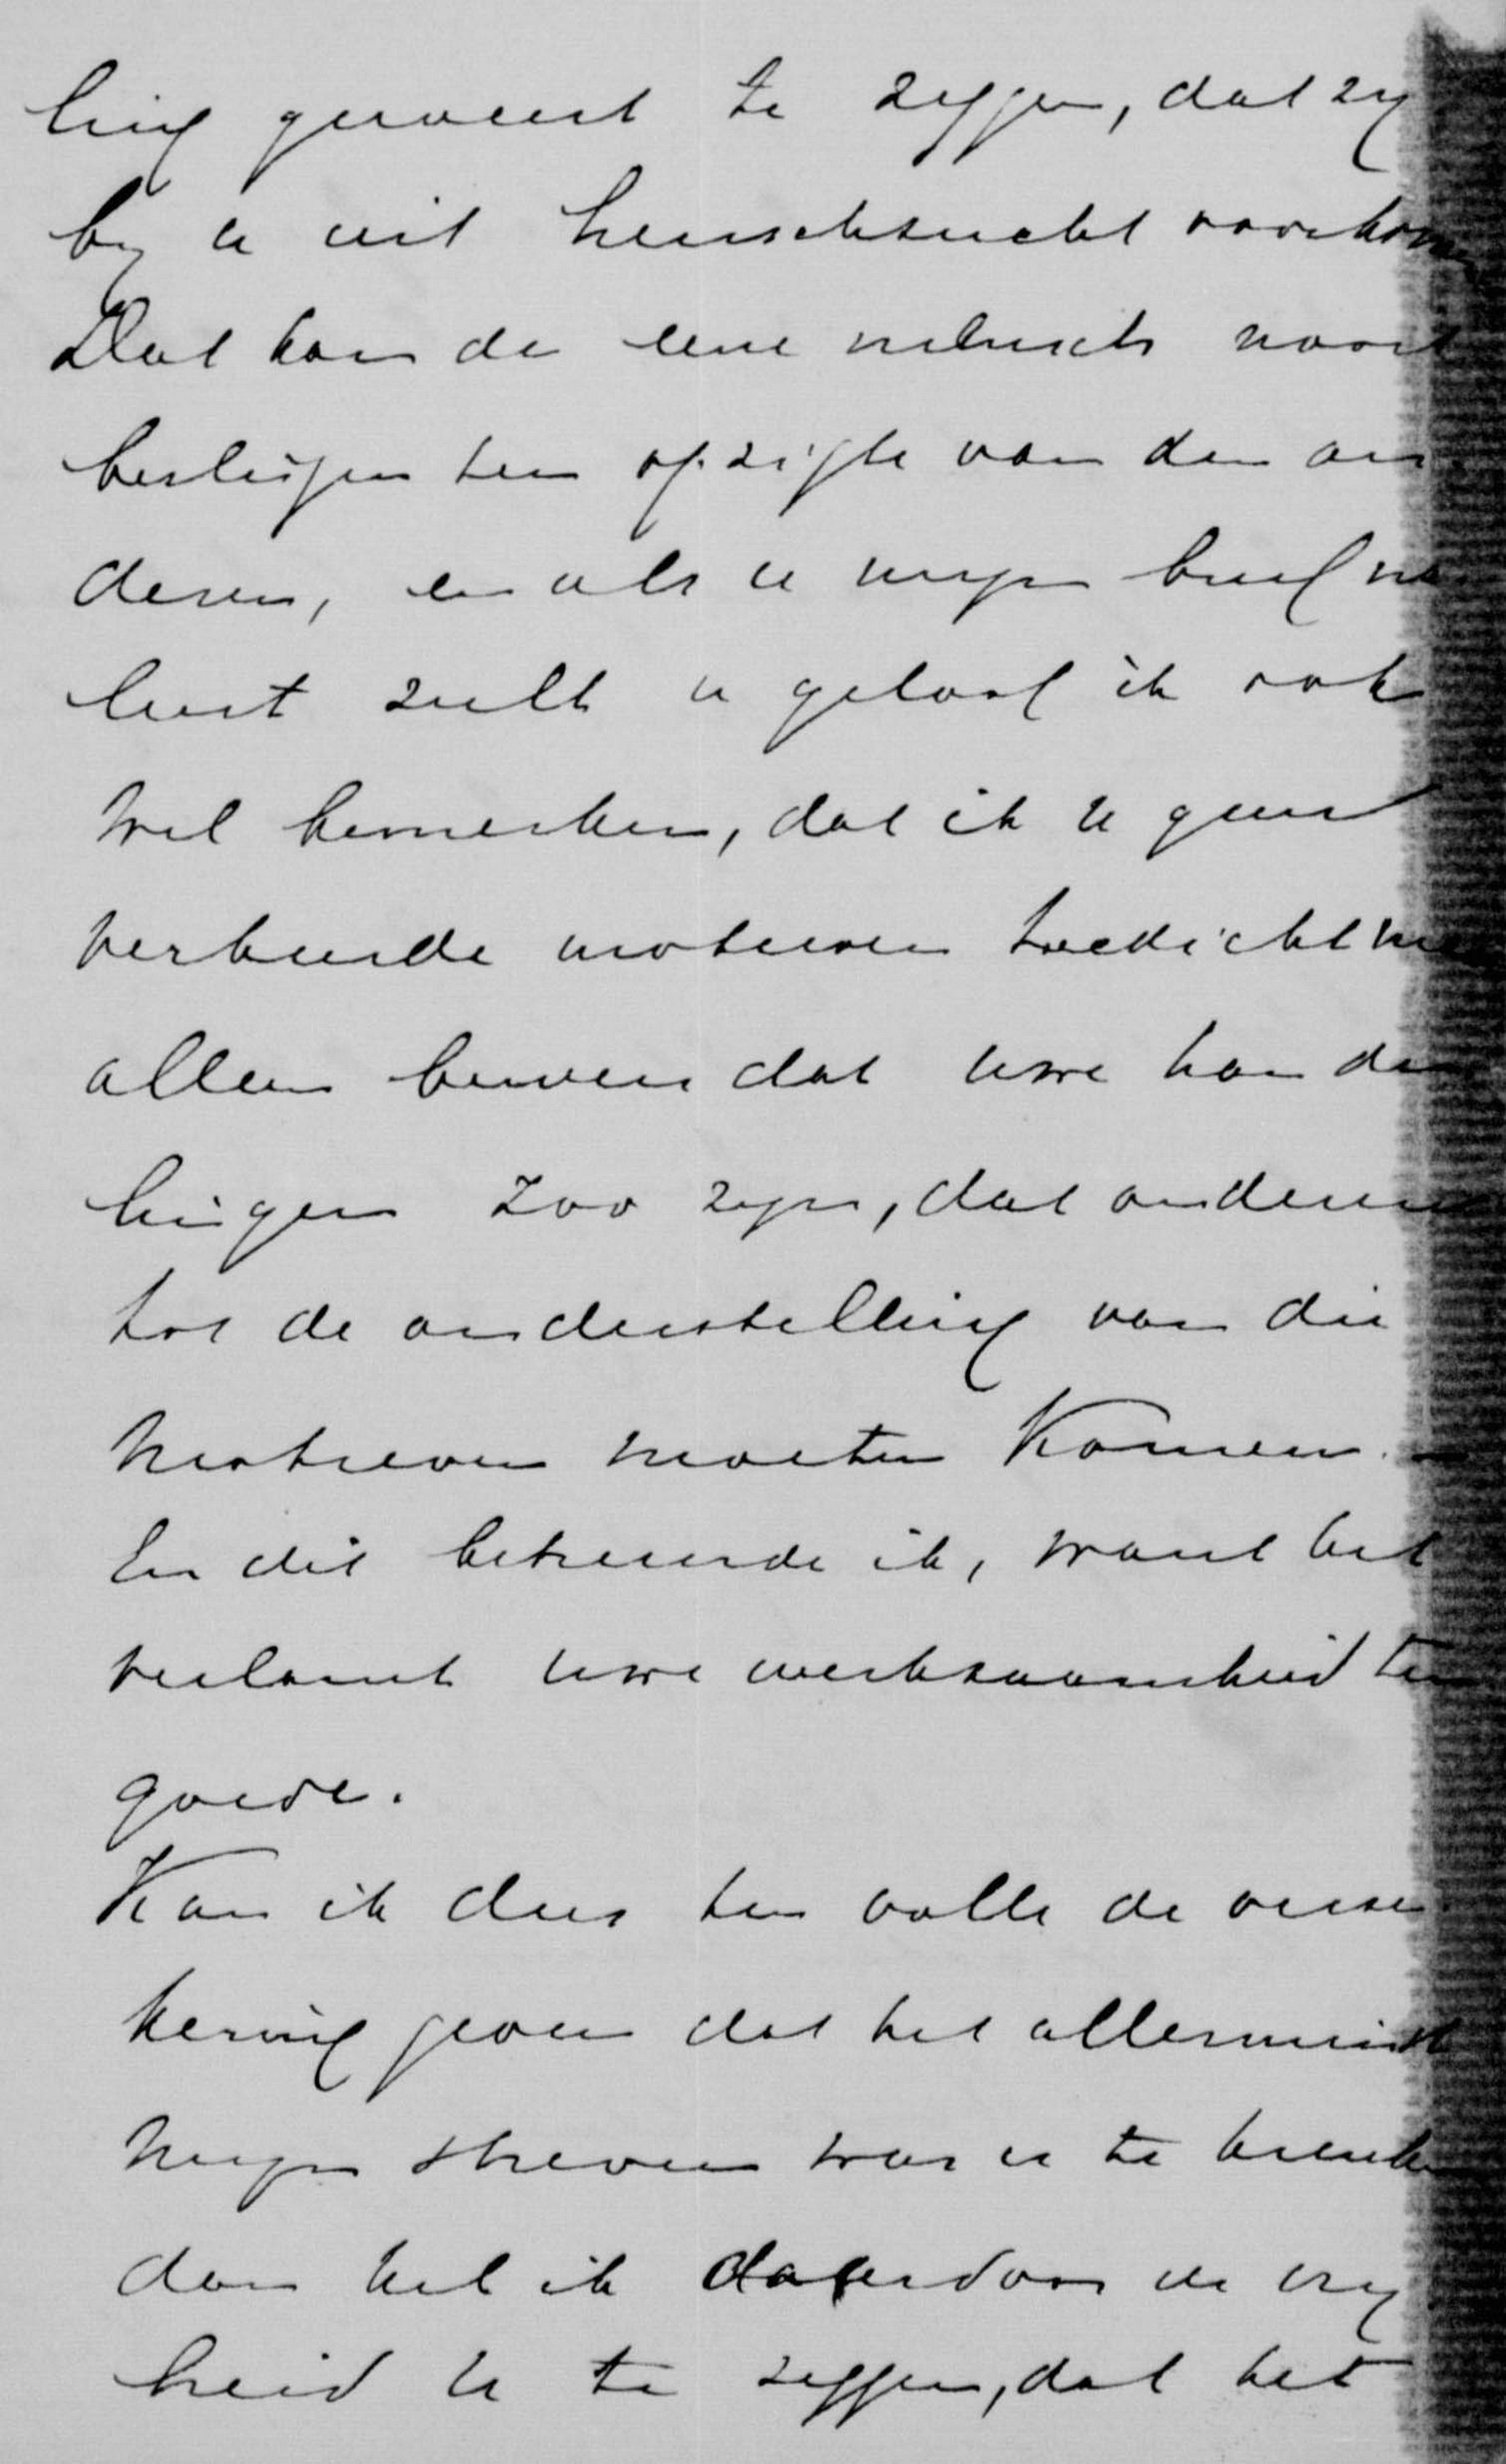 ling geweest te zeggen, dat zij
bij u uit heerschzucht voorkomen
Dat kan de eene mensch nooit
beslissen ten opzichte van den an
deren, en als u mijn brief na
leest zult u geloof ik ook
wel bemerken, dat ik u geen
verkeerde motieven toedicht me
alleen beweer dat uwe hande
lingen zoo zijn, dat anderen
tot de onderstelling van die
motieven moeten komen. -
En dit betreurde ik, want het
verlamt uwe werkzaamheid ten
goede.
Kan ik dus ten volle de verze
kering geven dat het allerminst
mijn streven was u te krenken
dan heb ik daardoor de vrij
heid u te zeggen, dat het